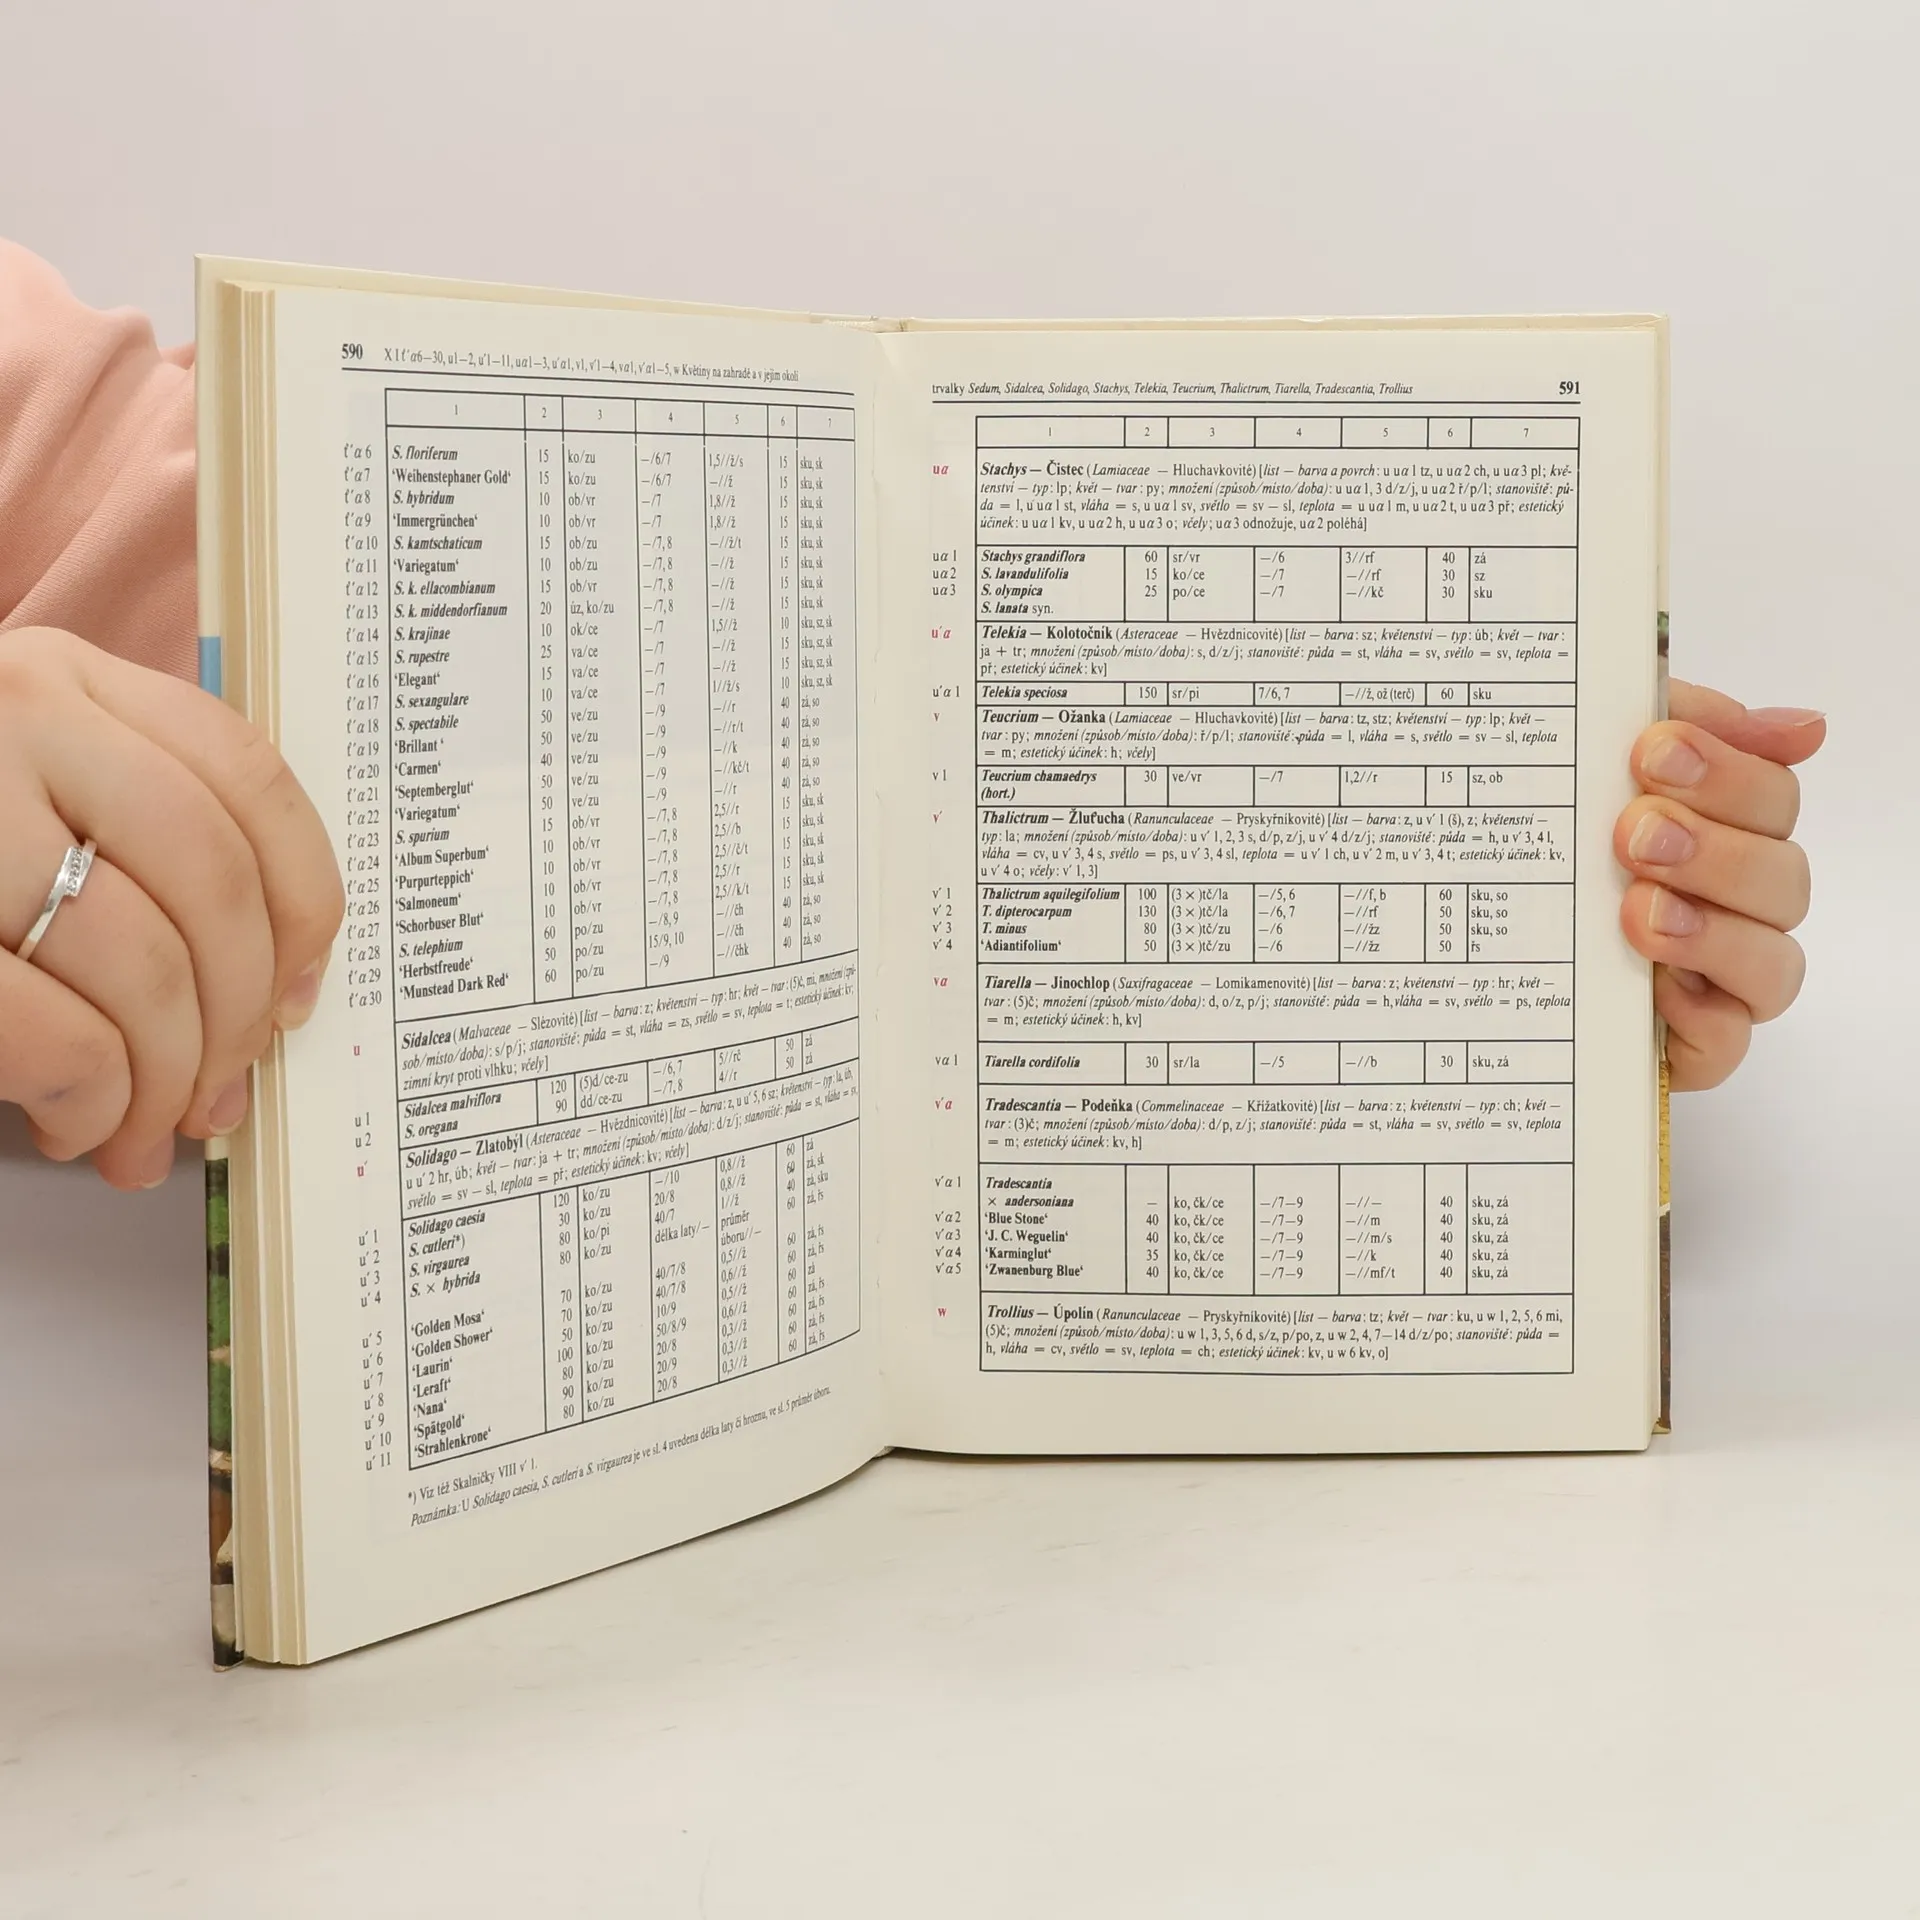 590 XI ť´α6–30, u1–2, u´1–11, uα1–3, u´α1, v1, v´1–4, vα1, v´α1–5, w Květiny na zahradě a v jejím okolí
1 2 3 4 5 6 7
ť´α 6 S. floriferum 15 ko/zu –/6/7 1,5//ž/s 15 sku, sk
ť´α 7 'Weihenstephaner Gold' 15 ko/zu –/6/7 –//ž 15 sku, sk
ť´α 8 S. hybridum 10 ob/vr –/7 1,8//ž 15 sku, sk
ť´α 9 'Immergrünchen' 10 ob/vr –/7 1,8//ž 15 sku, sk
ť´α 10 S. kamtschaticum 15 ob/zu –/7, 8 –//ž/t 15 sku, sk
ť´α 11 'Variegatum' 10 ob/zu –/7, 8 –//ž 15 sku, sk
ť´α 12 S. k. ellacombianum 15 ob/vr –/7, 8 –//ž 15 sku, sk
ť´α 13 S. k. middendorfianum 20 úz, ko/zu –/7, 8 –//ž 15 sku, sk
ť´α 14 S. krajinae 10 ok/ce –/7 1,5//ž 10 sku, sz, sk
ť´α 15 S. rupestre 25 va/ce –/7 –//ž 15 sku, sz, sk
ť´α 16 'Elegant' 15 va/ce –/7 –//ž 15 sku, sz, sk
ť´α 17 S. sexangulare 10 va/ce –/7 1//ž/s 10 sku, sz, sk
ť´α 18 S. spectabile 50 ve/zu –/9 –//r 40 zá, so
ť´α 19 'Brillant' 50 ve/zu –/9 –//r/t 40 zá, so
ť´α 20 'Carmen' 40 ve/zu –/9 –//k 40 zá, so
ť´α 21 'Septemberglut' 50 ve/zu –/9 –//kč/t 40 zá, so
ť´α 22 'Variegatum' 50 ve/zu –/9 –//r 40 zá, so
ť´α 23 S. spurium 15 ob/vr –/7, 8 2,5//r 15 sku, sk
ť´α 24 'Album Superbum' 10 ob/vr –/7, 8 2,5//b 15 sku, sk
ť´α 25 'Purpurteppich' 10 ob/vr –/7, 8 2,5//č/t 15 sku, sk
ť´α 26 'Salmoneum' 10 ob/vr –/7, 8 2,5//r 15 sku, sk
ť´α 27 'Schorbuser Blut' 10 ob/vr –/7, 8 2,5//k/t 15 sku, sk
ť´α 28 S. telephium 60 po/zu –/8, 9 –//čh 40 zá, so
ť´α 29 'Herbstfreude' 50 po/zu 15/9, 10 –//čh 40 zá, so
ť´α 30 'Munstead Dark Red' 60 po/zu –/9 –//čhk 40 zá, so
u Sidalcea (Malvaceae – Slézovité) [list – barva: z; květenství – typ: hr; květ – tvar: (5)č, mi, množení (způ-
sob/místo/doba): s/p/j; stanoviště: půda = st, vláha = zs, světlo = sv, teplota = t; estetický účinek: kv;
zimní kryt proti vlhku; včely]
u 1 Sidalcea malviflora 120 (5)d/ce-zu –/6, 7 5//rč 50 zá
u 2 S. oregana 90 dd/ce-zu –/7, 8 4//r 50 zá
u´ Solidago – Zlatobýl (Asteraceae – Hvězdnicovité) [list – barva: z, u u´ 5, 6 sz; květenství – typ: la, úb,
u u´ 2 hr, úb; květ – tvar: ja + tr; množení (způsob/místo/doba): d/z/j; stanoviště: půda = st, vláha = sv,
světlo = sv – sl, teplota = př; estetický účinek: kv; včely]
u´ 1 Solidago caesia 120 ko/zu –/10 0,8//ž 60 zá
u´ 2 S. cutleri*) 30 ko/zu 20/8 0,8//ž 60 zá, sk
u´ 3 S. virgaurea 80 ko/pi 40/7 1//ž 40 zá, sku
u´ 4 S. × hybrida 80 ko/zu délka laty/– průměr 60 zá, řs
úboru//–
u´ 5 'Golden Mosa' 70 ko/zu 40/7/8 0,5//ž 60 zá, řs
u´ 6 'Golden Shower' 70 ko/zu 40/7/8 0,6//ž 60 zá, řs
u´ 7 'Laurin' 50 ko/zu 10/9 0,5//ž 60 zá
u´ 8 'Leraft' 100 ko/zu 50/8/9 0,6//ž 60 zá, řs
u´ 9 'Nana' 80 ko/zu 20/8 0,3//ž 60 zá, řs
u´ 10 'Spätgold' 90 ko/zu 20/9 0,3//ž 60 zá, řs
u´ 11 'Strahlenkrone' 80 ko/zu 20/8 0,3//ž 60 zá, řs
*) Viz též Skalničky VIII v´ 1.
Poznámka: U Solidago caesia, S. cutleri a S. virgaurea je ve sl. 4 uvedena délka laty či hroznu, ve sl. 5 průměr úboru.
trvalky Sedum, Sidalcea, Solidago, Stachys, Telekia, Teucrium, Thalictrum, Tiarella, Tradescantia, Trollius 591
1 2 3 4 5 6 7
uα Stachys – Čistec (Lamiaceae – Hluchavkovité) [list – barva a povrch: u uα 1 tz, u uα 2 ch, u uα 3 pl; kvě-
tenství – typ: lp; květ – tvar: py; množení (způsob/místo/doba): u uα 1, 3 d/z/j, u uα 2 ř/p/l; stanoviště: pů-
da = l, u uα 1 st, vláha = s, u uα 1 sv, světlo = sv – sl, teplota = u uα 1 m, u uα 2 t, u uα 3 př; estetický
účinek: u uα 1 kv, u uα 2 h, u uα 3 o; včely; uα 3 odnožuje, uα 2 poléhá]
uα 1 Stachys grandiflora 60 sr/vr –/6 3//rf 40 zá
uα 2 S. lavandulifolia 15 ko/ce –/7 –//rf 30 sz
uα 3 S. olympica 25 po/ce –/7 –//kč 30 sku
S. lanata syn.
u´α Telekia – Kolotočník (Asteraceae – Hvězdnicovité) [list – barva: sz; květenství – typ: úb; květ – tvar:
ja + tr; množení (způsob/místo/doba): s, d/z/j; stanoviště: půda = st, vláha = sv, světlo = sv, teplota =
př; estetický účinek: kv]
u´α 1 Telekia speciosa 150 sr/pi 7/6, 7 –//ž, ož (terč) 60 sku
v Teucrium – Ožanka (Lamiaceae – Hluchavkovité) [list – barva: tz, stz; květenství – typ: lp; květ –
tvar: py; množení (způsob/místo/doba): ř/p/l; stanoviště: půda = l, vláha = s, světlo = sv – sl, teplota
= m; estetický účinek: h; včely]
v 1 Teucrium chamaedrys 30 ve/vr –/7 1,2//r 15 sz, ob
(hort.)
v´ Thalictrum – Žluťucha (Ranunculaceae – Pryskyřníkovité) [list – barva: z, u v´ 1 (š), z; květenství –
typ: la; množení (způsob/místo/doba): u v´ 1, 2, 3 s, d/p, z/j, u v´ 4 d/z/j; stanoviště: půda = h, u v´ 3, 4 l,
vláha = cv, u v´ 3, 4 s, světlo = ps, u v´ 3, 4 sl, teplota = u v´ 1 ch, u v´ 2 m, u v´ 3, 4 t; estetický účinek: kv,
u v´ 4 o; včely: v´ 1, 3]
v´ 1 Thalictrum aquilegifolium 100 (3 ×)tč/la –/5, 6 –//f, b 60 sku, so
v´ 2 T. dipterocarpum 130 (3 ×)tč/la –/6, 7 –//rf 50 sku, so
v´ 3 T. minus 80 (3 ×)tč/zu –/6 –//žz 50 sku, so
v´ 4 'Adiantifolium' 50 (3 ×)tč/zu –/6 –//žz 50 řs
vα Tiarella – Jinochlop (Saxifragaceae – Lomikamenovité) [list – barva: z; květenství – typ: hr; květ –
tvar: (5)č; množení (způsob/místo/doba): d, o/z, p/j; stanoviště: půda = h, vláha = sv, světlo = ps, teplota
= m; estetický účinek: h, kv]
vα 1 Tiarella cordifolia 30 sr/la –/5 –//b 30 sku, zá
v´α Tradescantia – Podeňka (Commelinaceae – Křížatkovité) [list – barva: z; květenství – typ: ch; květ –
tvar: (3)č; množení (způsob/místo/doba): d/p, z/j; stanoviště: půda = st, vláha = sv, světlo = sv, teplota
= m; estetický účinek: kv, h]
v´α 1 Tradescantia
× andersoniana – ko, čk/ce –/7–9 –//– 40 sku, zá
v´α 2 'Blue Stone' 40 ko, čk/ce –/7–9 –//m 40 sku, zá
v´α 3 'J. C. Weguelin' 40 ko, čk/ce –/7–9 –//m/s 40 sku, zá
v´α 4 'Karminglut' 35 ko, čk/ce –/7–9 –//k 40 sku, zá
v´α 5 'Zwanenburg Blue' 40 ko, čk/ce –/7–9 –//mf/t 40 sku, zá
w Trollius – Úpolín (Ranunculaceae – Pryskyřníkovité) [list – barva: tz; květ – tvar: ku, u w 1, 2, 5, 6 mi,
(5)č; množení (způsob/místo/doba): u w 1, 3, 5, 6 d, s/z, p/po, z, u w 2, 4, 7–14 d/z/po; stanoviště: půda =
h, vláha = cv, světlo = sv, teplota = ch; estetický účinek: kv, u w 6 kv, o]